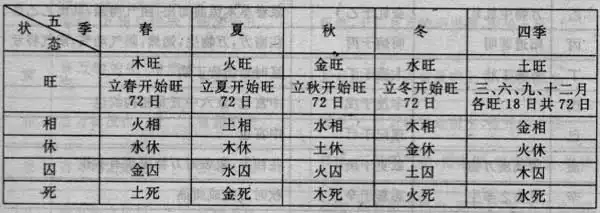 状态 五 季 春 夏 秋 冬 四季
旺 木旺 火旺 金旺 水旺 土旺
立春开始旺 立夏开始旺 立秋开始旺 立冬开始旺 三、六、九、十二月
72日 72日 72日 72日 各旺18日共72日
相 火相 土相 水相 木相 金相
休 水休 木休 土休 金休 火休
囚 金囚 水囚 火囚 土囚 木囚
死 土死 金死 木死 火死 水死